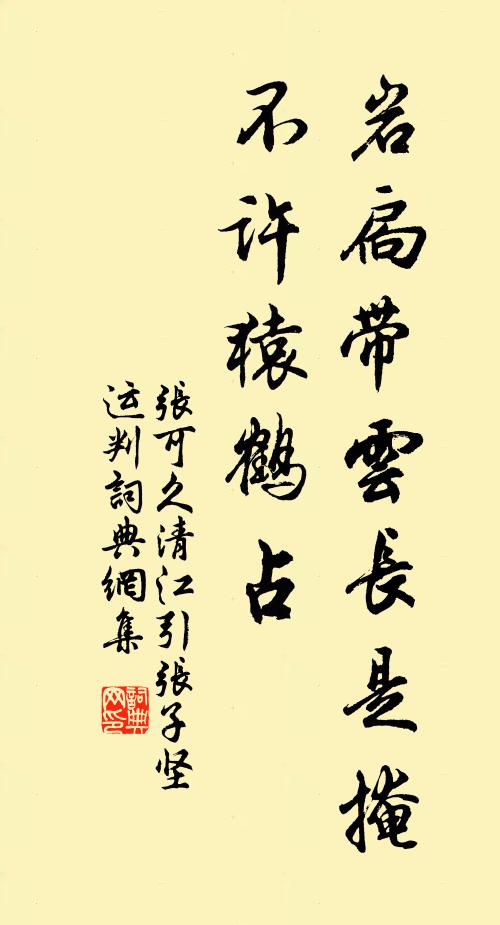 岩扃带雲長是掩
不许猿鹤占
張可久清江引張子坚
运判詞典網集
詞典
网印